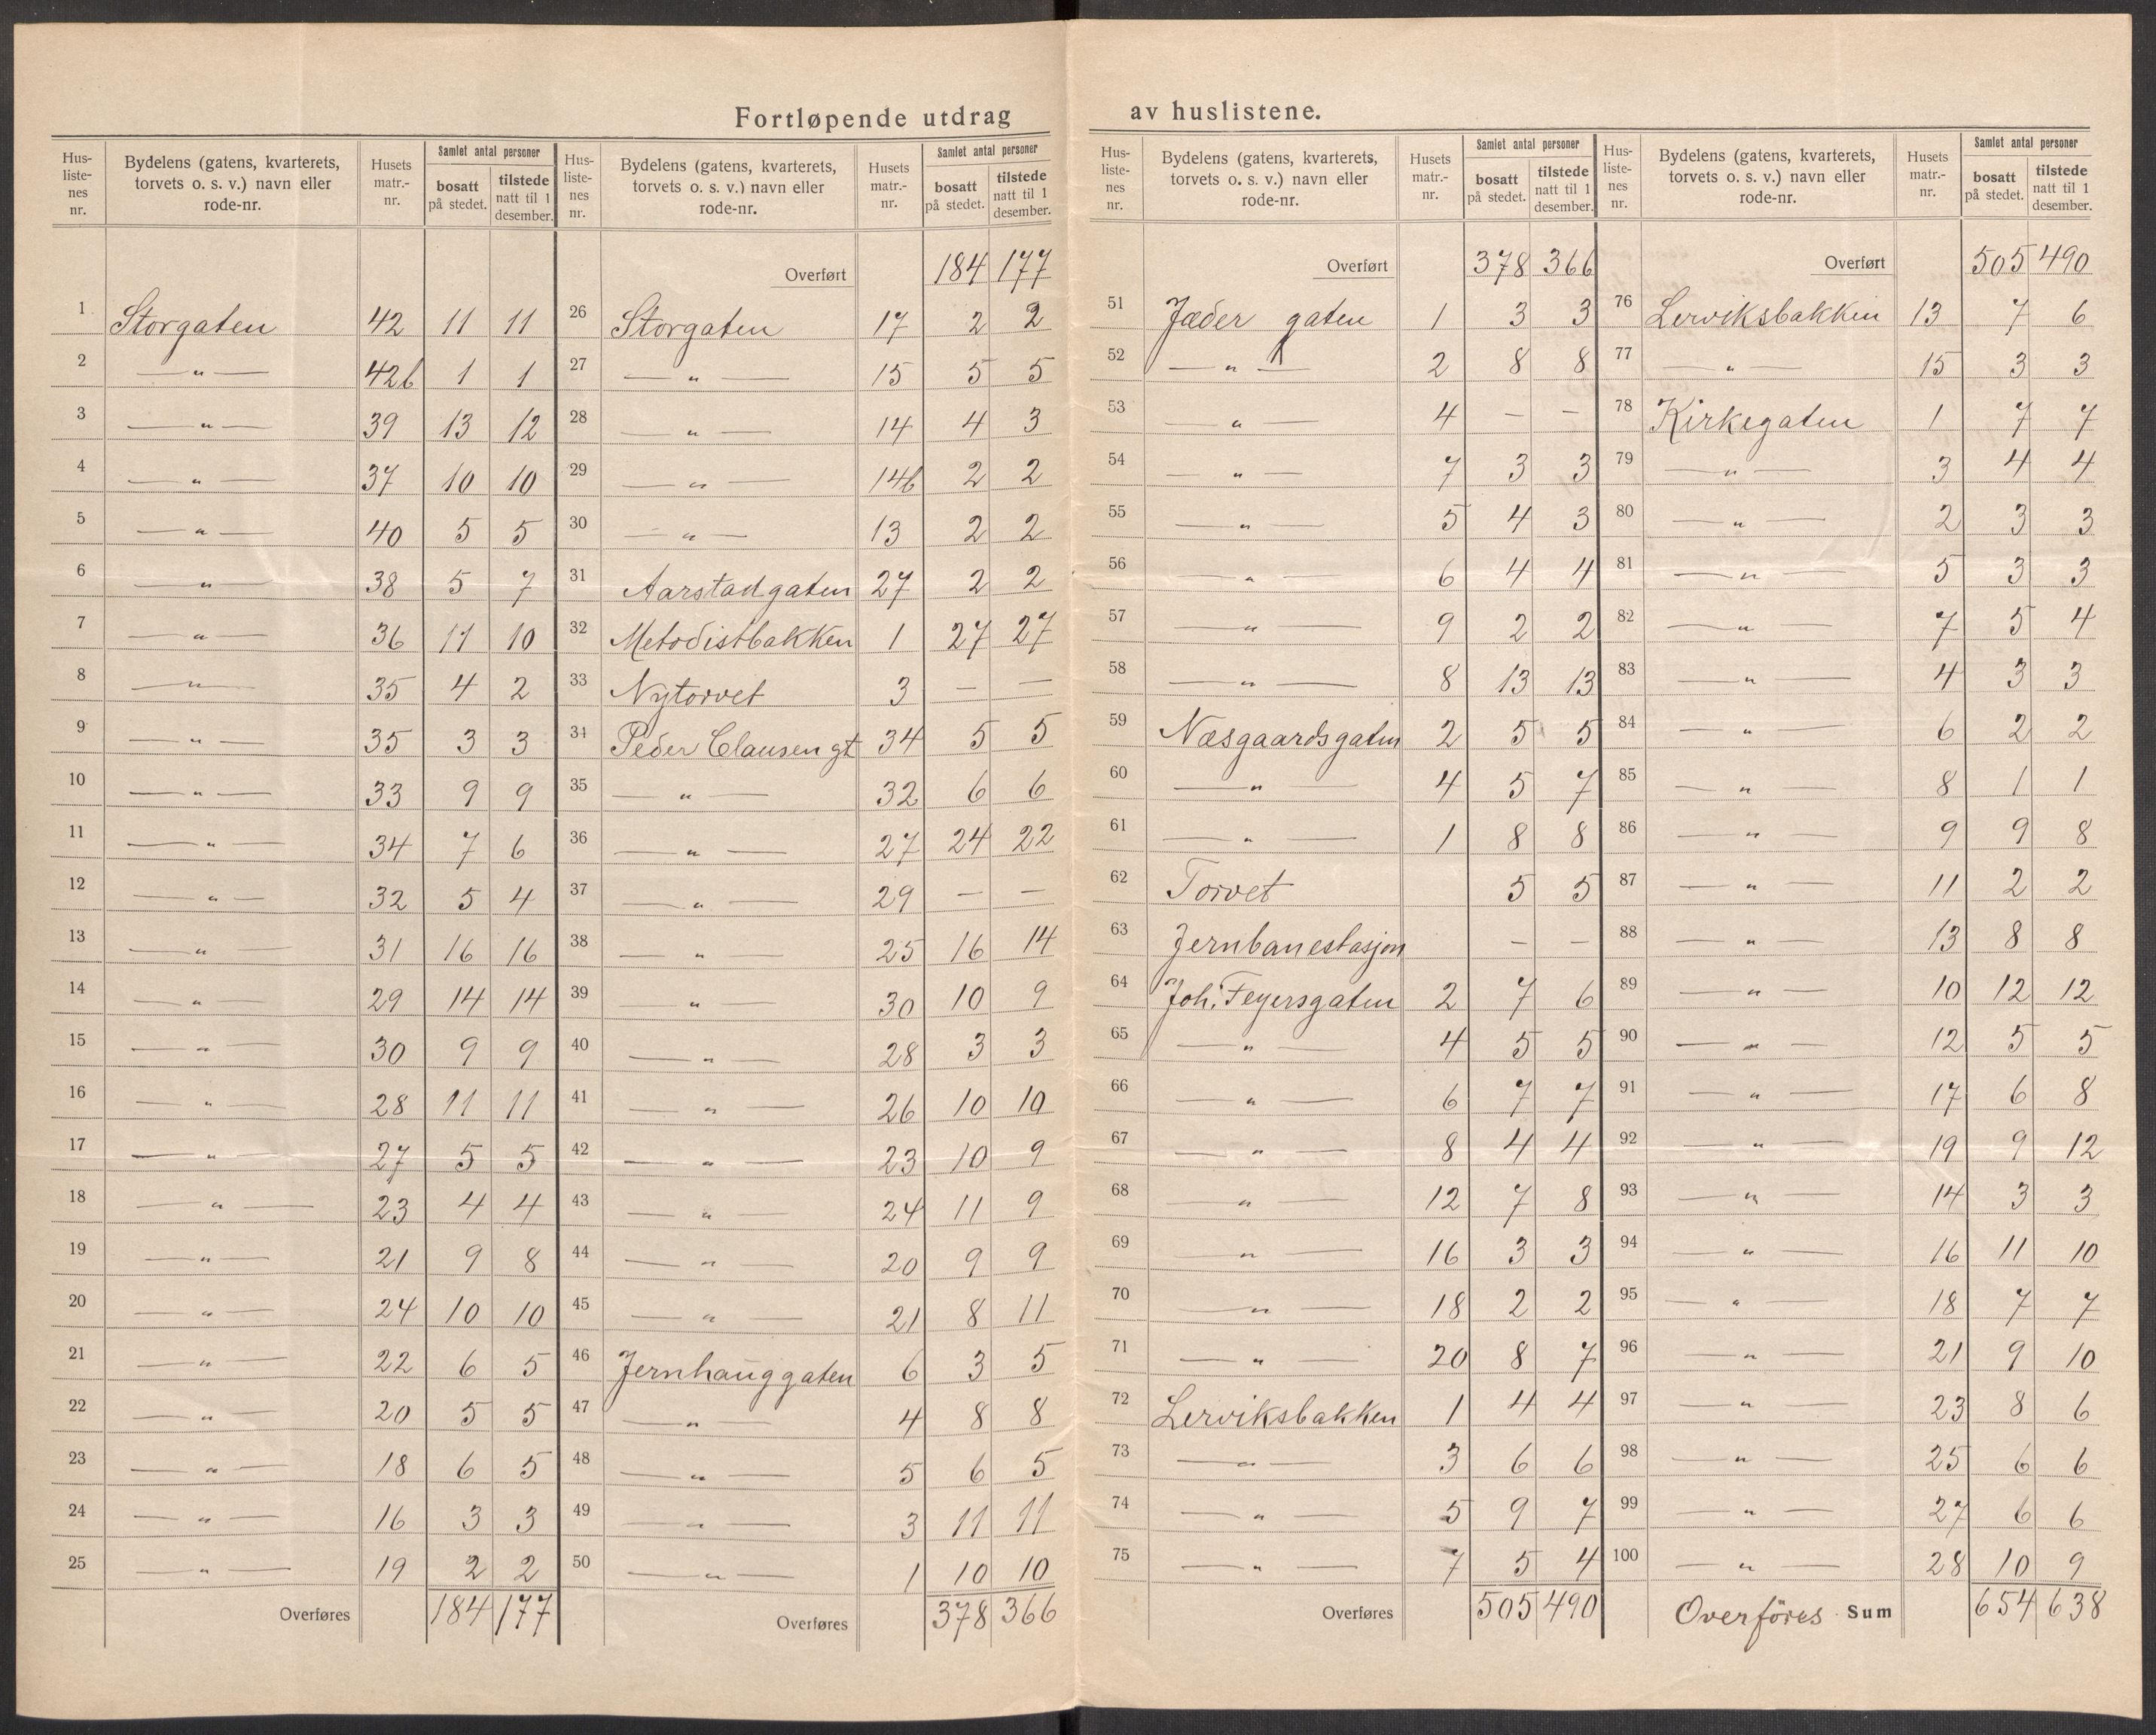 Fortløpende utdrag av huslistene.
Hus-liste-nes nr. Bydelens (gatens, kvarterets, torvets o. s. v.) navn eller rode-nr. Husets matr.-nr. Samlet antal personer bosatt på stedet. tilstede natt til 1 desember.
1 Storgaten 42 11 11
2 — " — 42b 1 1
3 — " — 39 13 12
4 — " — 37 10 10
5 — " — 40 5 5
6 — " — 38 5 7
7 — " — 36 11 10
8 — " — 35 4 2
9 — " — 35 3 3
10 — " — 33 9 9
11 — " — 34 7 6
12 — " — 32 5 4
13 — " — 31 16 16
14 — " — 29 14 14
15 — " — 30 9 9
16 — " — 28 11 11
17 — " — 27 5 5
18 — " — 23 4 4
19 — " — 21 9 8
20 — " — 24 10 10
21 — " — 22 6 5
22 — " — 20 5 5
23 — " — 18 6 5
24 — " — 16 3 3
25 — " — 19 2 2
Overføres 184 177
Hus-liste-nes nr. Bydelens (gatens, kvarterets, torvets o. s. v.) navn eller rode-nr. Husets matr.-nr. Samlet antal personer bosatt på stedet. tilstede natt til 1 desember.
Overført 184 177
26 Storgaten 17 2 2
27 — " — 15 5 5
28 — " — 14 4 3
29 — " — 14b 2 2
30 — " — 13 2 2
31 Aarstadgaten 27 2 2
32 Metodistbakken 1 27 27
33 Nytorvet 3 — —
34 Peder Clausen gt 34 5 5
35 — " — 32 6 6
36 — " — 27 24 22
37 — " — 29 — —
38 — " — 25 16 14
39 — " — 30 10 9
40 — " — 28 3 3
41 — " — 26 10 10
42 — " — 23 10 9
43 — " — 24 11 9
44 — " — 20 9 9
45 — " — 21 8 11
46 Jernhauggaten 6 3 5
47 — " — 4 8 8
48 — " — 5 6 5
49 — " — 3 11 11
50 — " — 1 10 10
Overføres 378 366
Hus-liste-nes nr. Bydelens (gatens, kvarterets, torvets o. s. v.) navn eller rode-nr. Husets matr.-nr. Samlet antal personer bosatt på stedet. tilstede natt til 1 desember.
Overført 378 366
51 Jæder gaten 1 3 3
52 — " — 2 8 8
53 — " — 4 — —
54 — " — 7 3 3
55 — " — 5 4 3
56 — " — 6 4 4
57 — " — 9 2 2
58 — " — 8 13 13
59 Næsgaardsgaten 2 5 5
60 — " — 4 5 7
61 — " — 1 8 8
62 Torvet 5 5
63 Jernbanestasjon — —
64 Joh. Feyersgaten 2 7 6
65 — " — 4 5 5
66 — " — 6 7 7
67 — " — 8 4 4
68 — " — 12 7 8
69 — " — 16 3 3
70 — " — 18 2 2
71 — " — 20 8 7
72 Lerviksbakken 1 4 4
73 — " — 3 6 6
74 — " — 5 9 7
75 — " — 7 5 4
Overføres 505 490
Hus-liste-nes nr. Bydelens (gatens, kvarterets, torvets o. s. v.) navn eller rode-nr. Husets matr.-nr. Samlet antal personer bosatt på stedet. tilstede natt til 1 desember.
Overført 505 490
76 Lerviksbakken 13 7 6
77 — " — 15 3 3
78 Kirkegaten 1 7 7
79 — " — 3 4 4
80 — " — 2 3 3
81 — " — 5 3 3
82 — " — 7 5 4
83 — " — 4 3 3
84 — " — 6 2 2
85 — " — 8 1 1
86 — " — 9 9 8
87 — " — 11 2 2
88 — " — 13 8 8
89 — " — 10 12 12
90 — " — 12 5 5
91 — " — 17 6 8
92 — " — 19 9 12
93 — " — 14 3 3
94 — " — 16 11 10
95 — " — 18 7 7
96 — " — 21 9 10
97 — " — 23 8 6
98 — " — 25 6 6
99 — " — 27 6 6
100 — " — 28 10 9
Overföres Sum 654 638